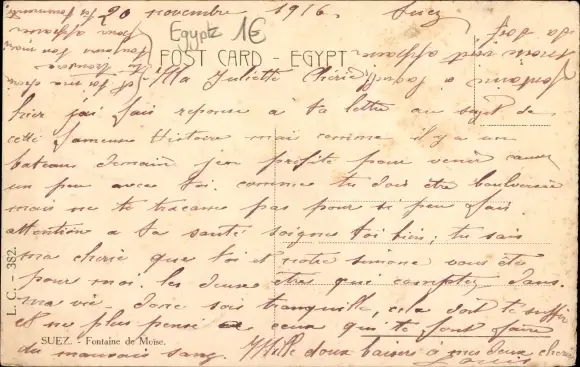 20 novembre 1916. Suez
Egypte 1€
POST CARD - EGYPT
Ma Juliette Cherie
hier j'ai fais reponse a ta lettre au sujet de
cette fameuse histoire mai comme il y a un
bateau demain j'en profite pour venir causer
un peu avec toi. comme tu dois être boulversée
mais ne te tracasse pas pour si peu fais
attention a ta santé soigne toi bien, tu sais
ma cherie que toi et notre simone vous êtes
pour moi les deux etres qui comptez dans
ma vie. donc sois tranquille, cela doit te suffir
et ne plus pensé a ceux qui te font faire
du mauvais sang. Mille doux baisers à mes deux cheries
Louis
L. C. - 382.
SUEZ. - Fontaine de Moïse.